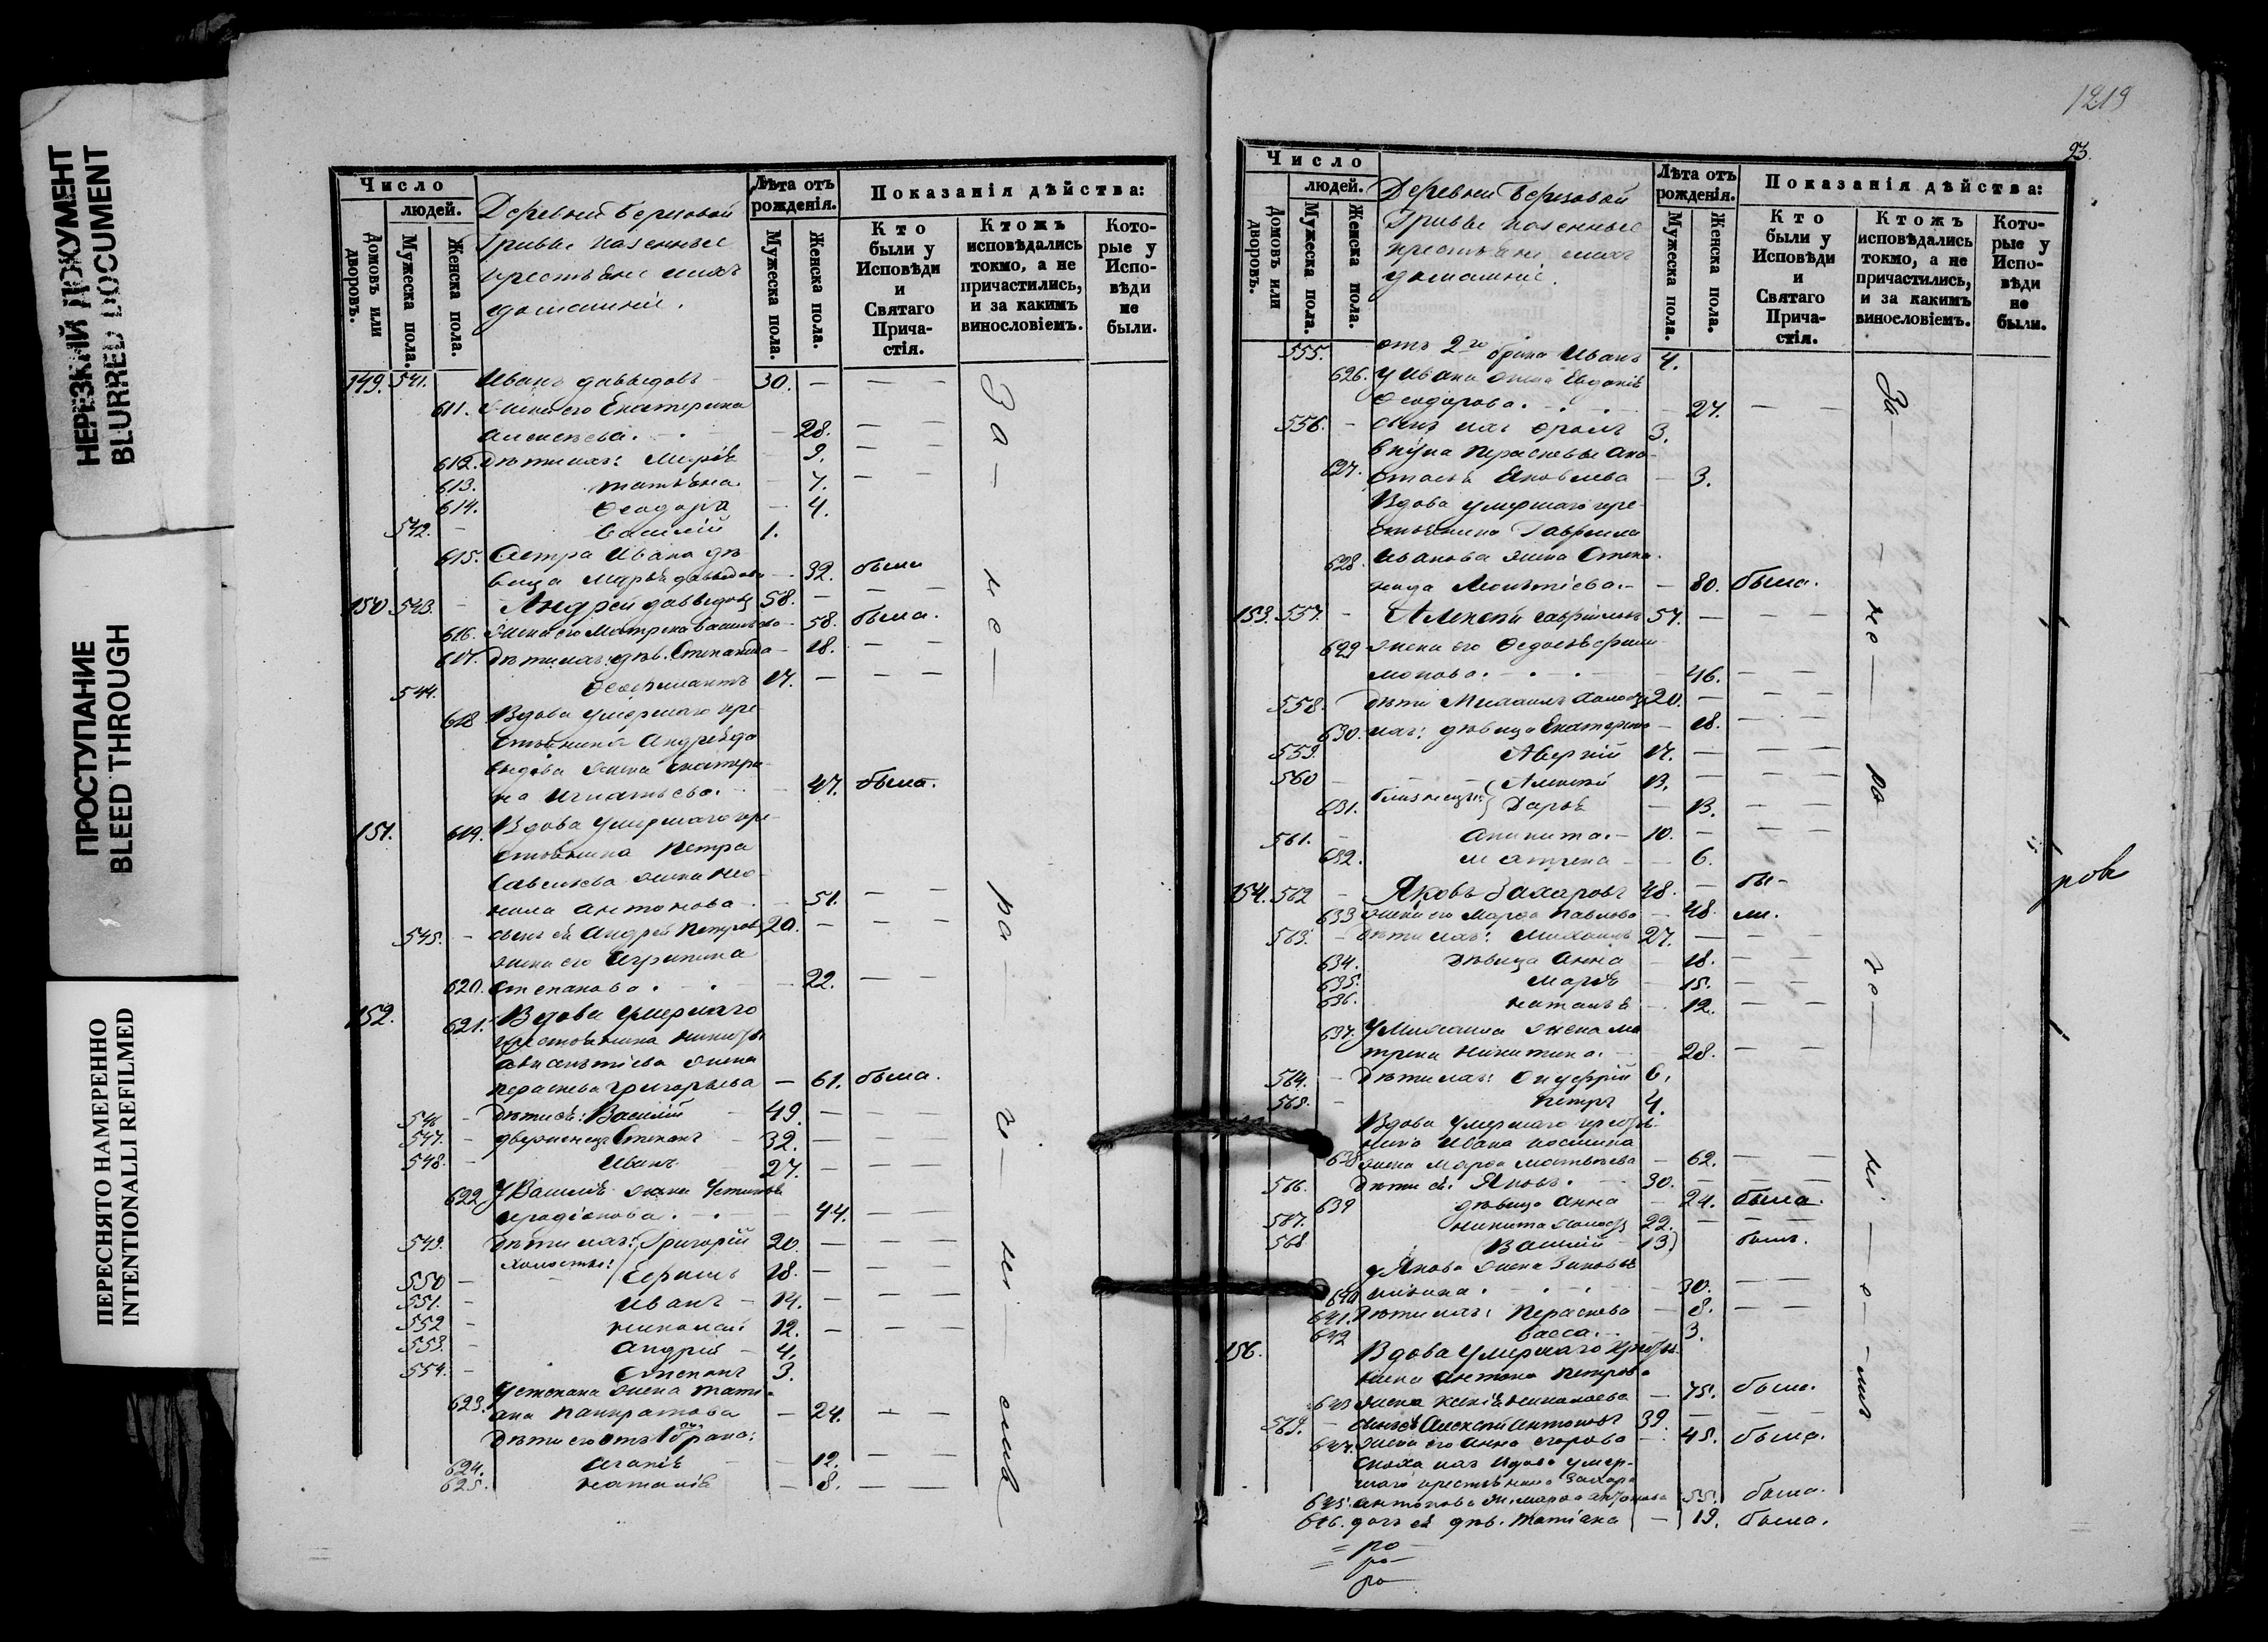 НЕРЕЗКИЙ ДОКУМЕНТ
BLURRED DOCUMENT
ПРОСТУПАНИЕ
BLEED THROUGH
ПЕРЕСНЯТО НАМЕРЕННО
INTENTIONALLI REFILMED
Число
людей.
Домовъ или дворовъ.
Мужеска пола.
Женска пола.
Деревни Березовой
Гривы казенные
крестьяне и ихъ
домашніе.
Лѣта отъ рожденія.
Мужеска пола.
Женска пола.
Показанія дѣйства:
Кто были у Исповѣди и Святаго Прича-стія.
Ктожъ исповѣдались токмо, а не причастились, и за какимъ винословіемъ.
Кото-рые у Испо-вѣди не были.
149. 541. Иванъ Давыдовъ 30. — — —
611. жена его Екатерина
Алексѣева. 28. — —
612. Дѣти ихъ: Марія 9. —
613. Татьяна. 7. —
614. Ѳеодора 4.
542. Василій 1.
615. Сестра Ивана дѣ-
вица Марья Давыдова 32. была
150. 543. Андрей Давыдовъ 58. — — —
616. жена его Матрена Васильева 58. была.
617. Дѣти ихъ: дѣв. Степанида 18. —
544. Ѳеофилактъ 17. — — —
618. Вдова умершаго кре-
стьянина Андрея Да-
выдова жена Екатери-
на Игнатьева. 47. была.
151. 619. Вдова умершаго кре-
стьянина Петра
Савельева жена Нео-
нила Антонова 51. — —
545. сынъ ея Андрей Петровъ 20. — — —
жена его Агрипина
620. Степанова. 22. — —
152. 621. Вдова умершаго
крестьянина
жена
Параскева Григорьева 61. была.
546 Дѣти ея: Василій 49. — — —
547. Степанъ 32. — — —
548. Иванъ 27. — — —
622. У Василія жена Устинья
Иродіонова. 44. — —
549. Дѣти ихъ: Григорій 20. — — —
холосты:
550 Ефимъ 18. — — —
551. Иванъ 14. — — —
552 Николай 12. — — —
553. Андрей 4.
554. Степанъ 3.
У Степана жена Тати-
623. ана Панкратова 24. — —
Дѣти его отъ 1 брака:
624. Агапія 12. — —
625. Наталія 8. — —
За — не — ра — че — ні — емъ
1219
23.
Число
людей.
Домовъ или дворовъ.
Мужеска пола.
Женска пола.
Деревни Березовой
Гривы казенные
крестьяне и ихъ
домашніе.
Лѣта отъ рожденія.
Мужеска пола.
Женска пола.
Показанія дѣйства:
Кто были у Исповѣди и Святаго Прича-стія.
Ктожъ исповѣдались токмо, а не причастились, и за какимъ винословіемъ.
Кото-рые у Испо-вѣди не были.
555. отъ 2го брака Иванъ 4.
626. У Ивана жена Евдокія
Ѳеодорова. 27. — —
556. сынъ ихъ Фролъ 3.
внука Параскевы Ана-
627. стасья Яковлева 3.
Вдова умершаго кре-
стьянина Гавриила
628. Иванова жена Степа-
нида 80. была.
153. 557. Алексѣй Гавріиловъ 57. — — —
629 жена его Ѳедосья
46. — —
558. Дѣти Михаилъ холостъ 20. — — —
630. ихъ: дѣвица Екатерина 18. — —
559. Аверкій 17. — — —
560 близнецы: Алексѣй 13. — — —
631. Дарья 13. — —
561. Аникита. 10. — — —
632. Матрена 6.
154. 562 Яковъ Захаровъ 48. — бы-
633 жена его Марѳа Павлова 48. ли.
563. Дѣти ихъ: Михаилъ 27. — — —
634. Дѣвица Анна 18. — —
635. Марія 15. — —
636. Наталья 12. — —
637. У Михаила жена Ма-
трена Никитина. 28. — —
564. Дѣти ихъ: Онуфрій 6.
565. Петръ 4.
Вдова умершаго крестья-
нина Ивана Космина
638 жена Марѳа Матвѣева 62. — —
566. Дѣти ея: Яковъ 30. — — —
639 дѣвица Анна 24. была.
567. Никита холостъ 22. — — —
568 Василій 13 былъ.
у Якова жена Зиновья
640 30. — —
641. Дѣти ихъ: Параскева 8. — —
642 Васса. 3.
156. Вдова умершаго крестья-
нина Антона Петрова
643 жена Ксенія Николаева 75. была.
569. сынъ ея Алексѣй Антоновъ 39. — — —
644. жена его Анна Егорова 45. была.
сноха ихъ вдова умер-
шаго крестьянина Захара
645. Антонова ж. Марѳа 55. была.
646. дочь ея дѣв. Татіана 19. была.
За — не — ра — че — ні — е — мъ